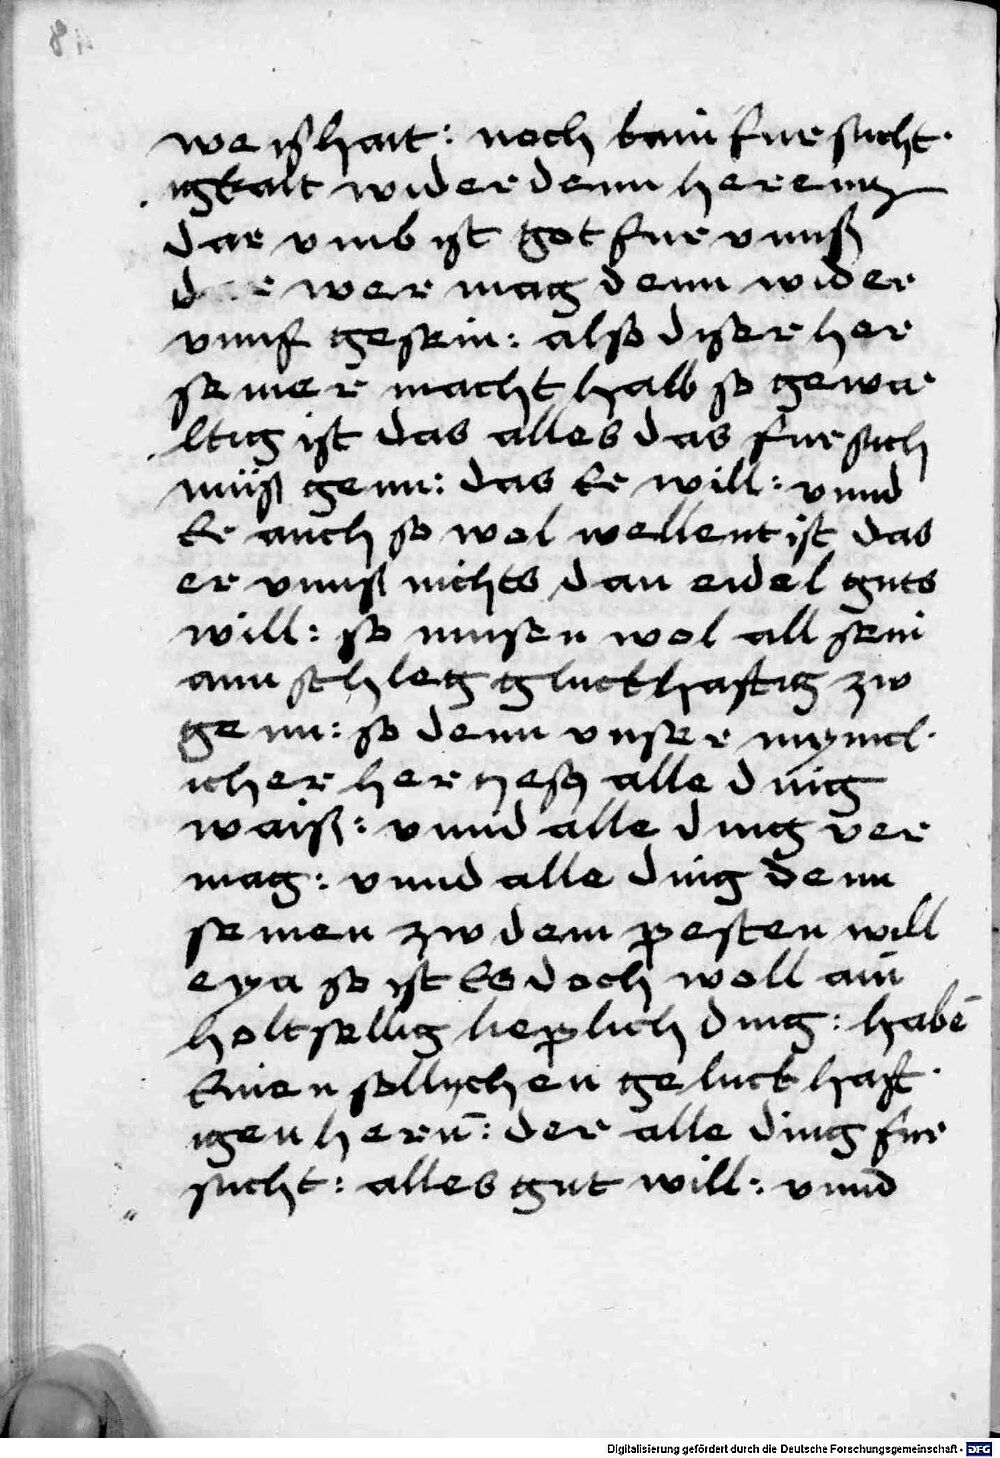 weißhait: noch kain fursicht
igkait wider denn herenn
dar vmb ist got fur vnnß
wer mag denn wider
vnnß gesein: also diser her
seiner macht halb so gewa
ltig ist das alles das fursich
müß genn: das Er will: vnnd
Er auch so wol wellent ist das
er vnnß nichts dan eidel guts
will: so musen wol all sein
annschleg gluckhaftig zw
genn: so denn vnser mynicl
icher her ihesus alle ding
waiß: vnnd alle ding ver
mag: vnnd alle ding denn
seinen zw dem pesten will
eya so ist Es doch woll ain
holtsellig lieplich ding: habē
Einen sollychen geluckhaft
igen hernn̄: der alle ding fur
sicht: alles gut will: vnnd
Digitalisierung gefördert durch die Deutsche Forschungsgemeinschaft - DFG